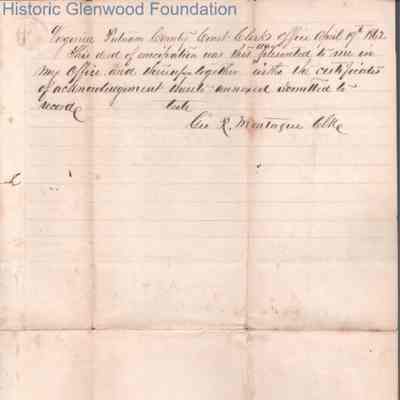 Historic Glenwood Foundation
Virginia Putnam County Court Clerks office April 19th 1862
This deed of emancipation was this day presented to me in
my office and thereupon together with the certificates
of acknowledgement thereto annexed admitted to
record Teste
Geo R. Montague Clk